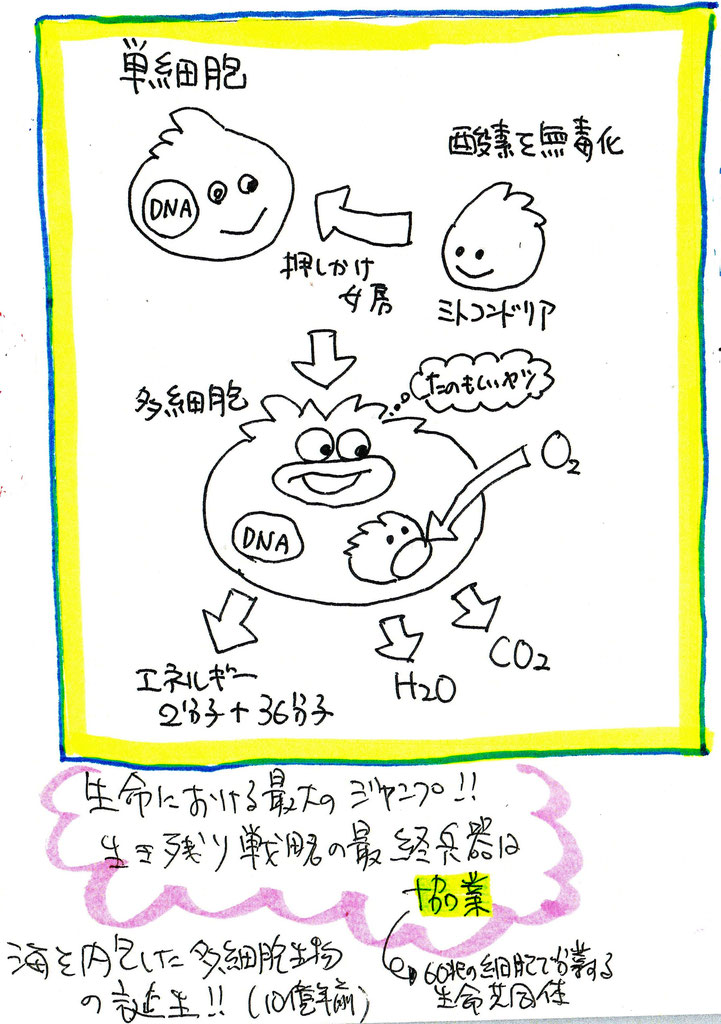 単細胞
酸素を無毒化
DNA
押しかけ
女房
ミトコンドリア
多細胞
たのもしいヤツ
O2
DNA
エネルギー
2分子+36分子
H2O
CO2
生命における最大のジャンプ!!
生き残り戦略の最終兵器は
協業
海を内包した多細胞生物
の誕生!!(10億年前)
60兆の細胞で分業する
生命共同体